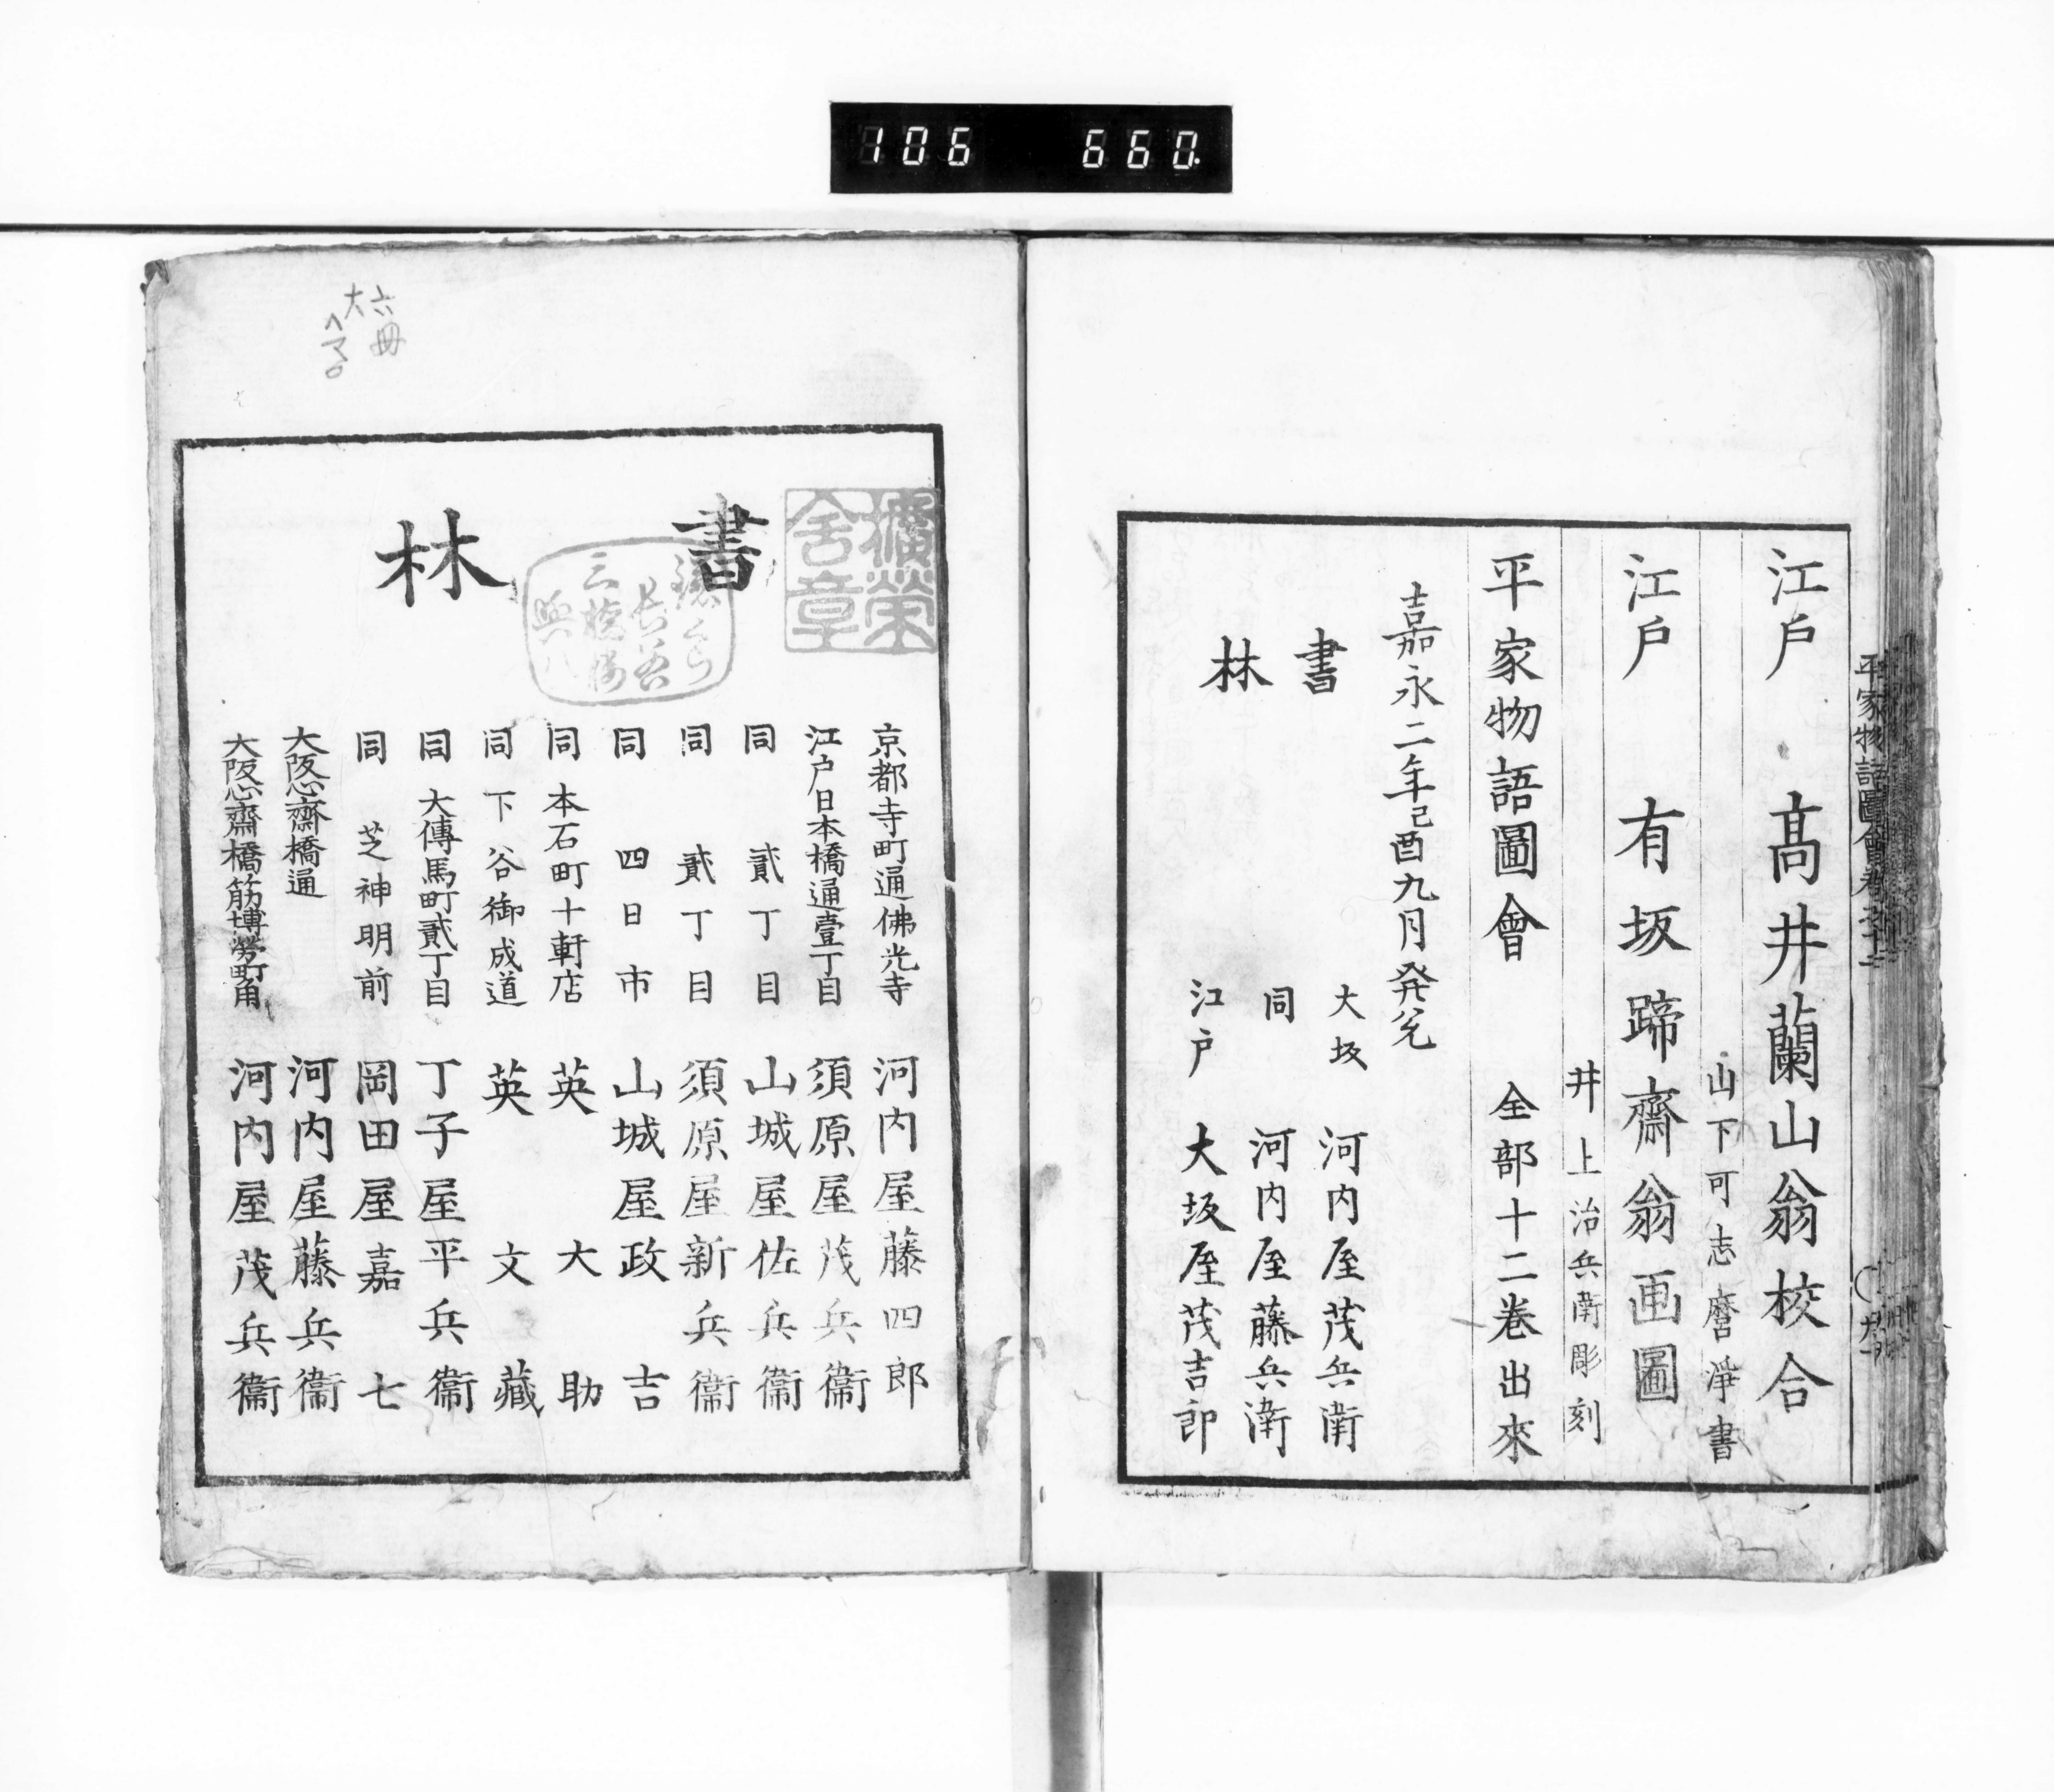 106 660
江戶 髙井蘭山翁校合
山下可志麿淨書
江戶 有坂蹄齋翁画圖
井上治兵衛彫刻
平家物語圖會 全部十二巻出來
嘉永二年己酉九月発兌
書林
大坂 河内屋茂兵衛
同 河内屋藤兵衛
江戶 大坂屋茂吉郎
書林
京都寺町通佛光寺 河内屋藤四郎
江戶日本橋通壹丁目 須原屋茂兵衞
同 貳丁目 山城屋佐兵衞
同 貳丁目 須原屋新兵衞
同 四日市 山城屋政吉
同 本石町十軒店 英大助
同 下谷御成道 英文藏
同 大傳馬町貳丁目 丁子屋平兵衞
同 芝神明前 岡田屋嘉七
大阪心齋橋通 河内屋藤兵衞
大阪心齋橋筋博勞町角 河内屋茂兵衞
六冊
大
平家物語圖會卷之十二